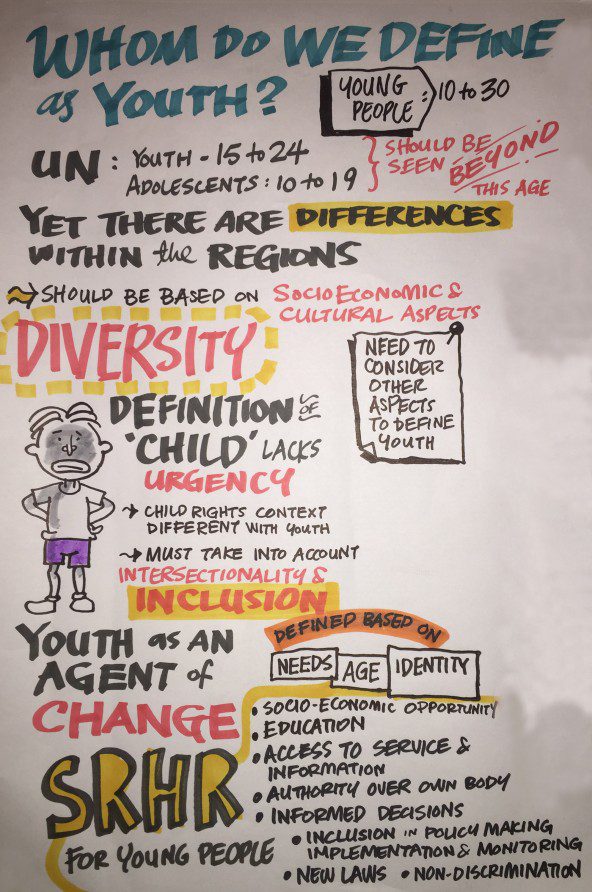 WHOM DO WE DEFINE
as YOUTH?
YOUNG
PEOPLE : 10 to 30
UN : YOUTH - 15 to 24
ADOLESCENTS : 10 to 19
SHOULD BE
SEEN BEYOND
THIS AGE
YET THERE ARE DIFFERENCES
WITHIN the REGIONS
SHOULD BE BASED ON SOCIOECONOMIC &
CULTURAL ASPECTS
DIVERSITY
NEED TO
CONSIDER
OTHER
ASPECTS
TO DEFINE
YOUTH
DEFINITION OF
'CHILD' LACKS
URGENCY
CHILD RIGHTS CONTEXT
DIFFERENT WITH YOUTH
MUST TAKE INTO ACCOUNT
INTERSECTIONALITY &
INCLUSION
YOUTH as AN
AGENT of
CHANGE
DEFINED BASED ON
NEEDS AGE IDENTITY
SRHR
FOR YOUNG PEOPLE
• SOCIO-ECONOMIC OPPORTUNITY
• EDUCATION
• ACCESS TO SERVICE &
INFORMATION
• AUTHORITY OVER OWN BODY
• INFORMED DECISIONS
• INCLUSION in POLICY MAKING
IMPLEMENTATION & MONITORING
• NEW LAWS • NON-DISCRIMINATION